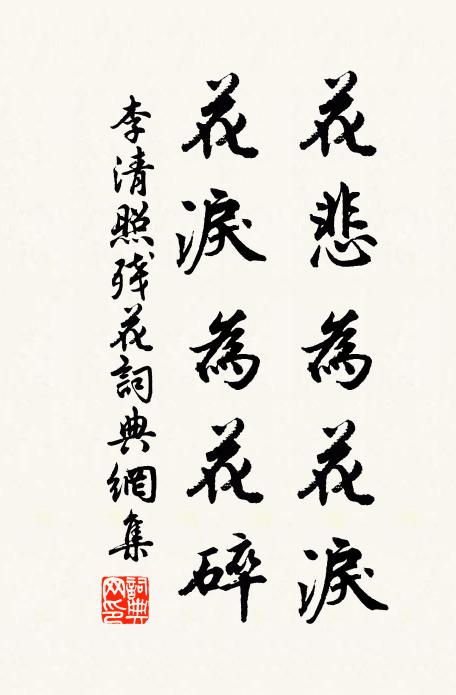 花悲為花淚
花淚為花碎
李清照残花詞典網集
詞典網印